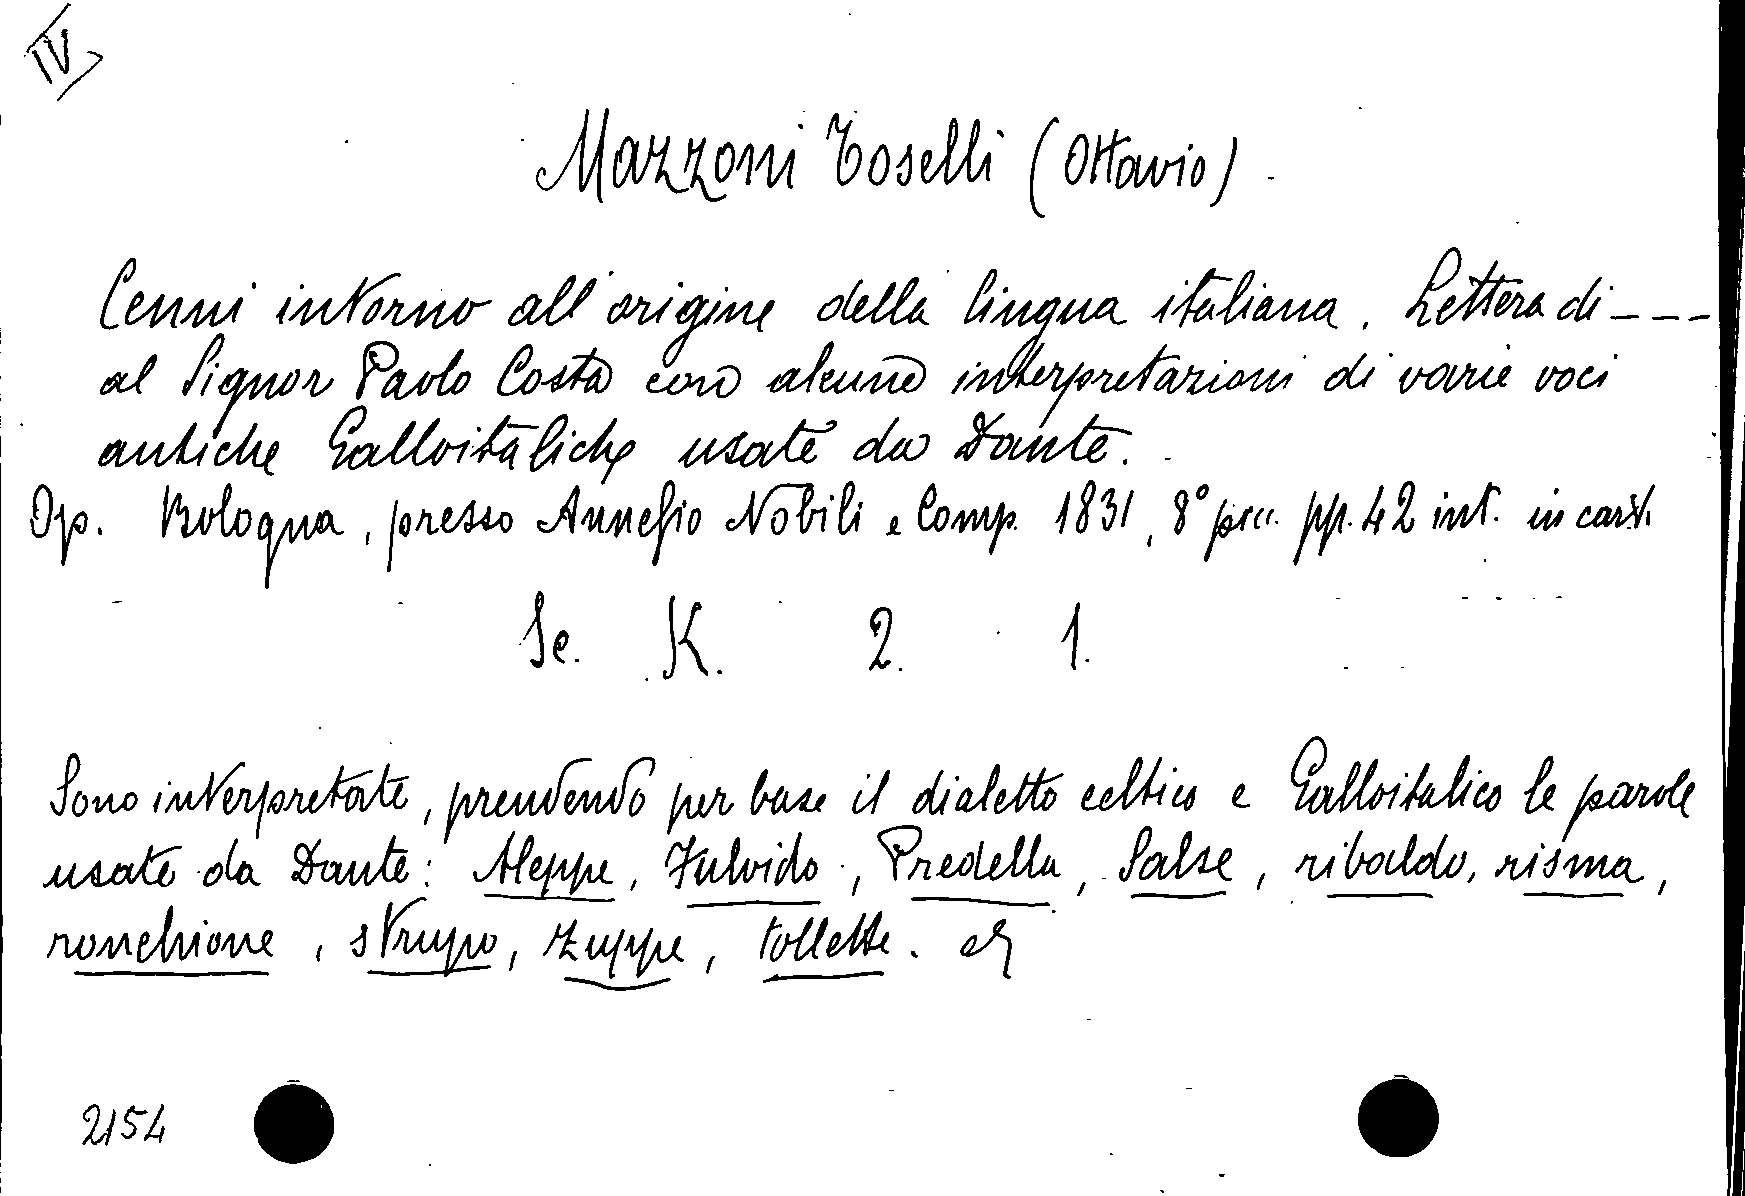 IV
Mazzoni Toselli (Ottavio)
Cenni intorno all'origine della lingua italiana. Lettera di ---
al Signor Paolo Costa con alcune interpretazioni di varie voci
antiche Galloitaliche usate da Dante.
Op. Bologna, presso Annesio Nobili e Comp. 1831, 8° picc. pp. 42 int. in cart.
Se. K. 2. 1.
Sono interpretate, prendendo per base il dialetto celtico e Galloitalico le parole
usate da Dante: Aleppe, Fulvido, Predella, Salse, ribaldo, risma,
ronchione, strupo, zuppe, tollette.
2154